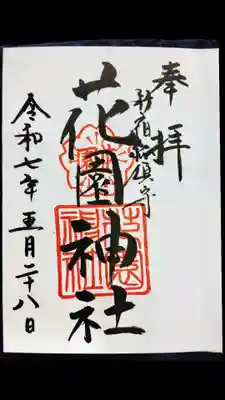 奉拝
新宿総鎮守
花園神社
令和七年五月二十八日